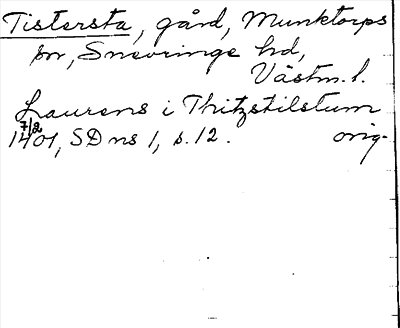 Tistersta, gård, Munktorps
sn, Snevringe hd,
Västm. l.
Laurens i Thitzstilstum
7/2
1401, SD ns 1, s. 12. orig.